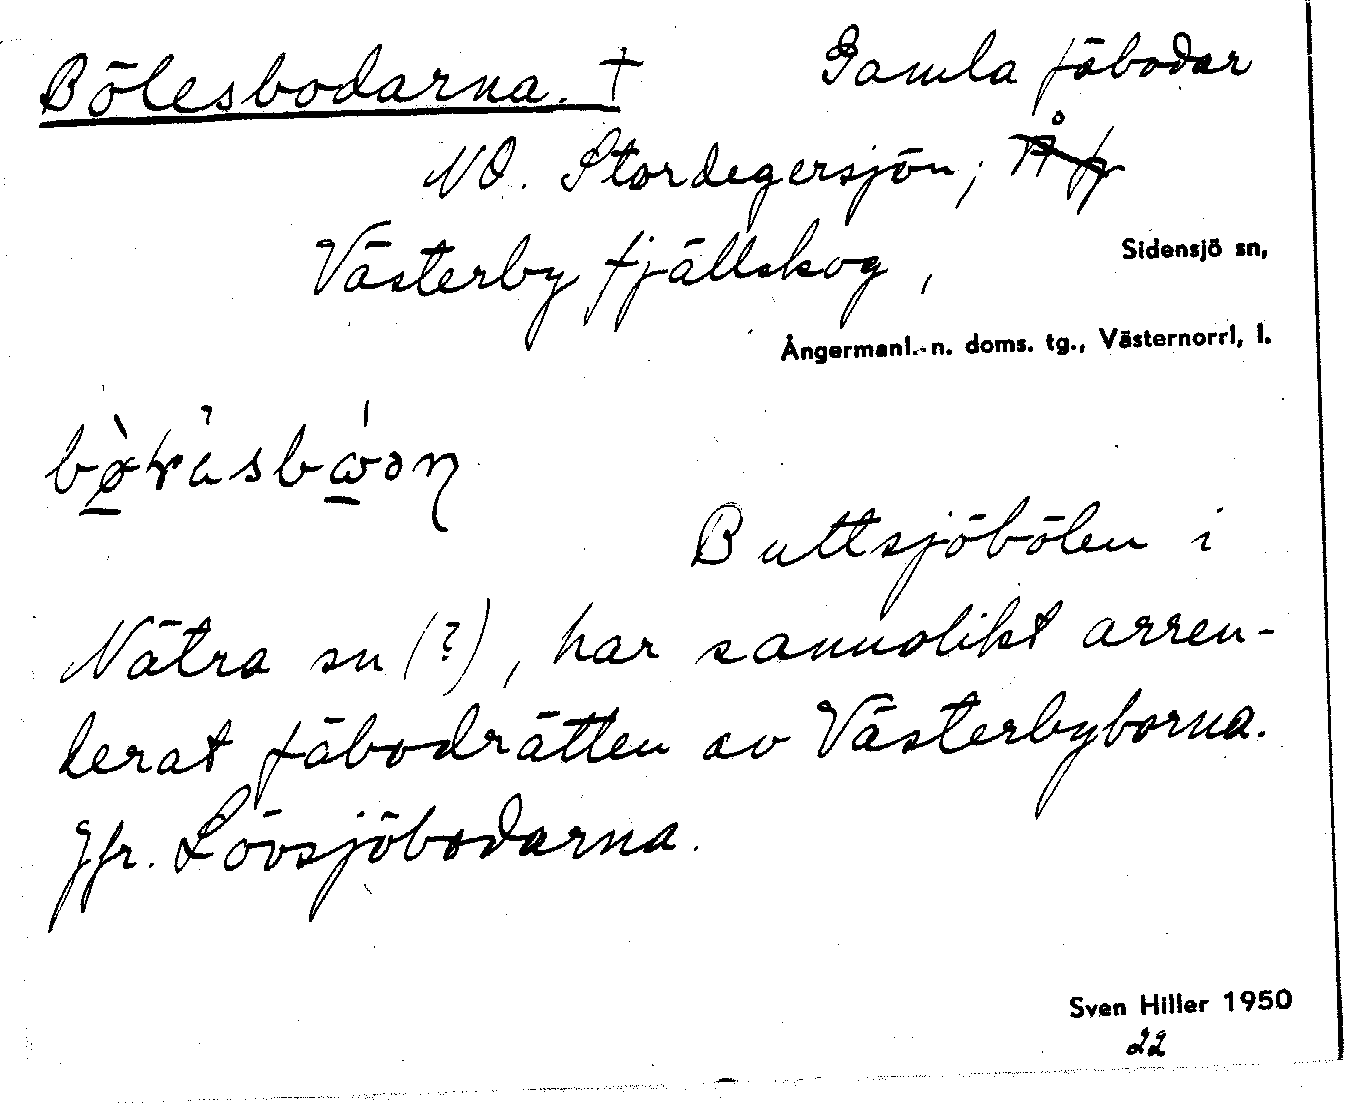 Bölesbodarna. † Gamla fäbodar
NO. Stordegersjön;
Västerby fjällskog, Sidensjö sn,
Ångermanl.-n. doms. tg., Västernorrl, l.
Buttsjöbölen i
Nätra sn (?), har sannolikt arren-
derat fäbodrätten av Västerbyborna.
Jfr. Lövsjöbodarna.
Sven Hiller 1950
22